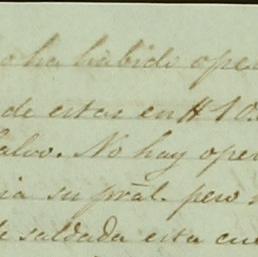 o ha habido ope
de estar en # 10.
alvo. No hay oper
ia su prãl. pero
de saldada esta cu